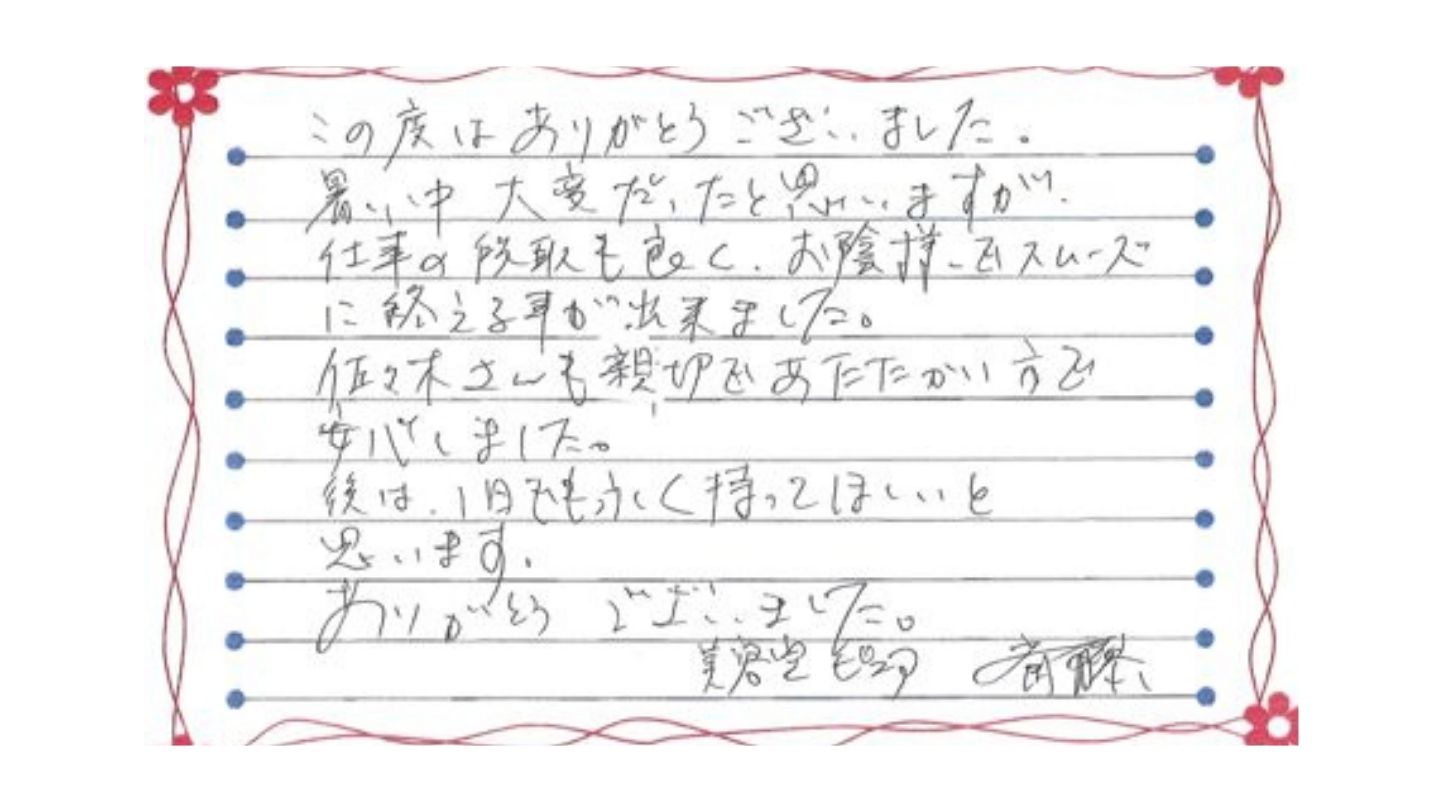 この度はありがとうございました。
暑い中 大変だったと思いますが、
仕事の段取も良く、お陰様でスムーズ
に終える事が出来ました。
佐々木さんも親切であたたかい方で
安心しました。
後は、1日でも永く持ってほしいと
思います。
ありがとうございました。
美容室 斉藤